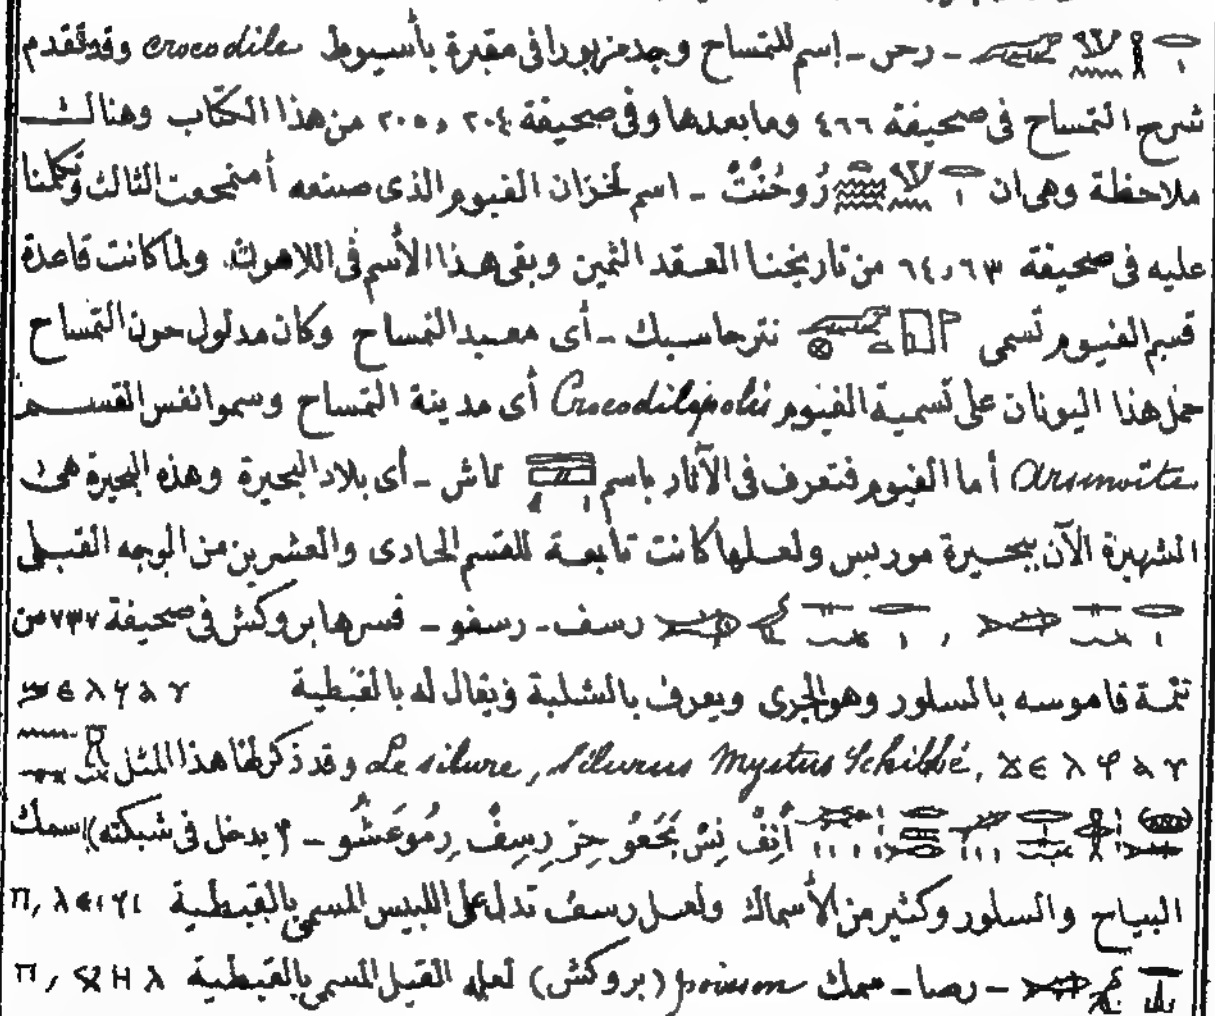 رحن - إسم للتمساح وجد مزبورا فى مقبرة بأسيوط crocodile وقد تقدم
شرح التمساح فى صحيفة ٤٦٦ وما بعدها وفى صحيفة ٢٠٤ و ٢٠٥ من هذا الكتاب وهنالك
ملاحظة وهى ان رُوحُنْتْ - اسم لخزان الفيوم الذى صنعه أمنمحعت الثالث وتكلمنا
عليه فى صحيفة ٦٣ و ٦٤ من تاريخنا العقد الثمين وبقى هذا الأسم فى اللاهون. ولما كانت قاعدة
قسم الفيوم تسمى نترحاسبك - أى معبد التمساح وكان مدلول حون التمساح
حمل هذا اليونان على تسمية الفيوم Crocodilopolis أى مدينة التمساح وسموا نفس القسم
Arsinoïte أما الفيوم فتعرف فى الآثار باسم تاش - أى بلاد البحيرة وهذه البحيرة هى
الشهيرة الآن ببحيرة موريس ولعلها كانت تابعة للقسم الحادى والعشرين من الوجه القبلى
, رسف - رسفو - فسرها بروكش فى صحيفة ٧٣٧ من
تتمة قاموسه بالسلور وهو الجرى ويعرف بالشلبة ويقال له بالقبطية
Le silure, silurus Mystus Schilbé, وقد ذكر لها هذا المثل
أَنِفْ نِسْ بَحَعُو حِرْ رِسِفْ رِمُوعَشُو - (م يدخل فى شبكته) إسمك
البياح والسلور وكثير من الأسماك ولعل رسف تدل على اللبيس المسمى بالقبطية
- رصا - سمك poisson (بروكش) لعله القيل المسمى بالقبطية